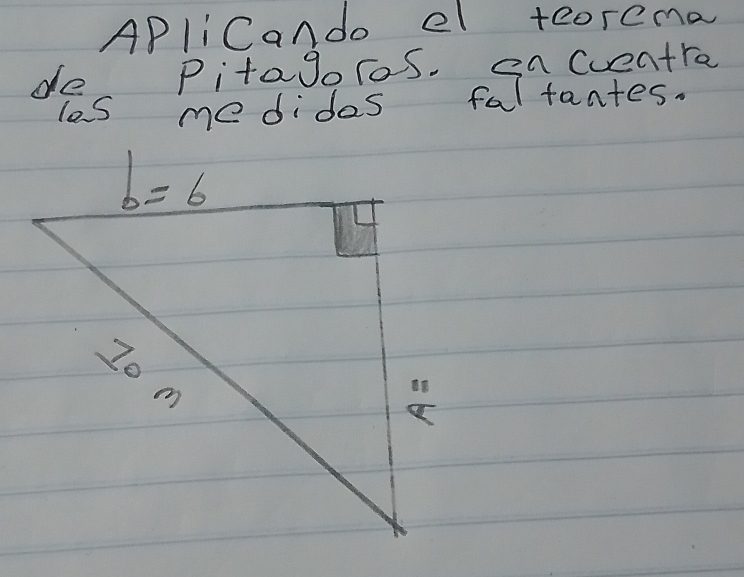 APliCando el teorema
de Pitagoras. encuentra
las medidas faltantes.
b= 6
10 m
A=